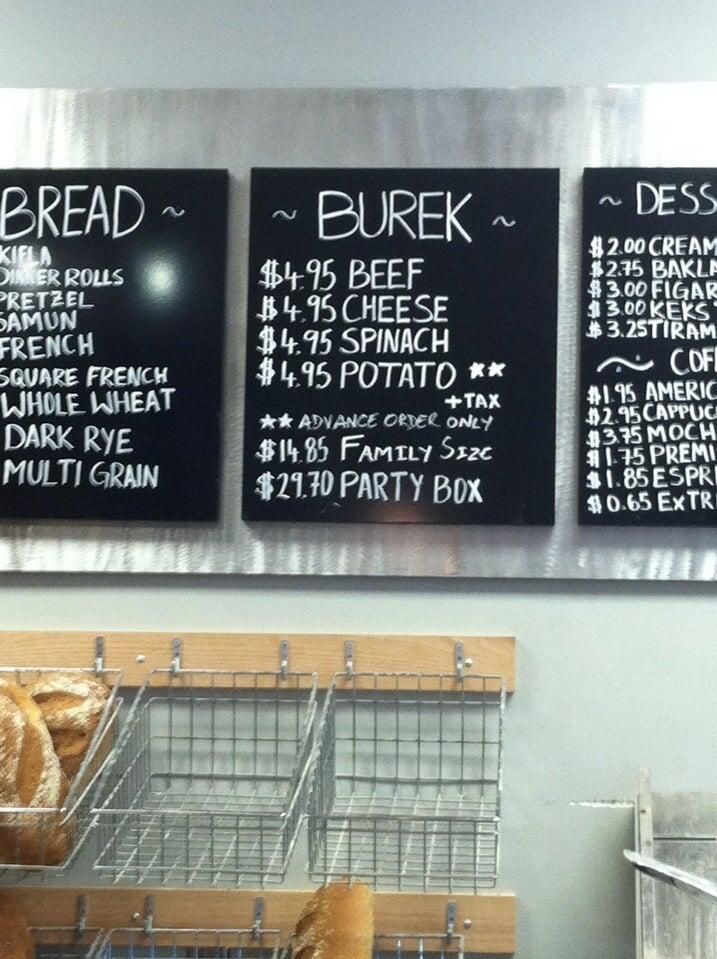 BREAD ~
KIFLA
DINNER ROLLS
PRETZEL
SAMUN
FRENCH
SQUARE FRENCH
WHOLE WHEAT
DARK RYE
MULTI GRAIN
~ BUREK ~
$4.95 BEEF
$4.95 CHEESE
$4.95 SPINACH
$4.95 POTATO **
+TAX
** ADVANCE ORDER ONLY
$14.85 FAMILY SIZE
$29.70 PARTY BOX
~ DESS
$2.00 CREAM
$2.75 BAKLA
$3.00 FIGAR
$3.00 KEKS
$3.25 TIRAM
~ COF
$1.95 AMERIC
$2.95 CAPPUC
$3.75 MOCH
$1.75 PREMI
$1.85 ESPR
$0.65 EXTR